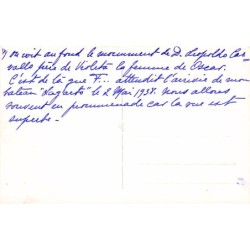 on voit au fond le monument de D. Leopoldo Ca-
vallo père de Violeta la femme de Oscar.
C'est de là que F... attendit l'arrivée de mon
bateau "Lagarto" le 2 Mai 1938. Nous allons
souvent en promenade car la vue est
superbe -